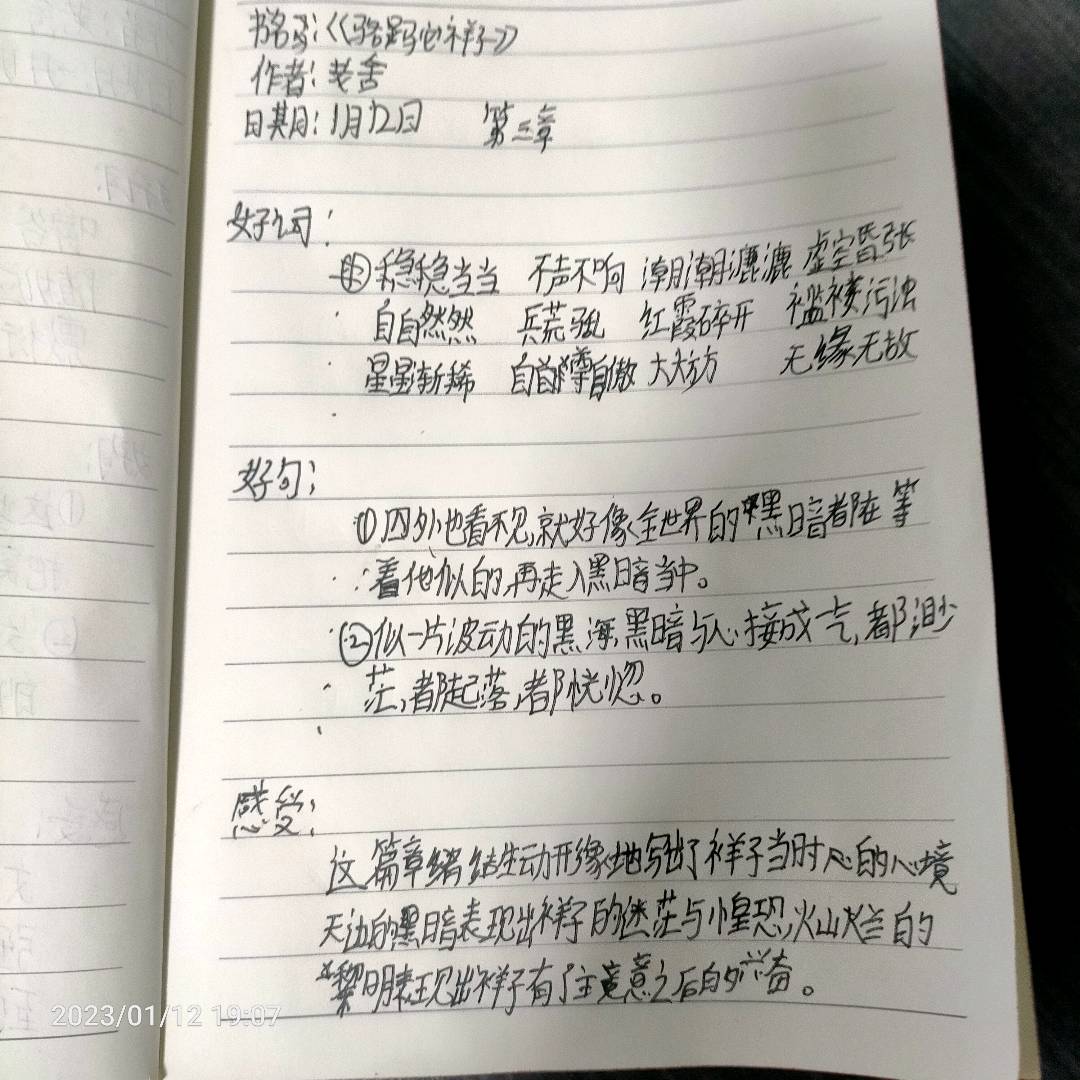 书名:《骆驼祥子》
作者:老舍
日期:1月12日 第三章
好词:
稳稳当当 不声不响 潮潮漉漉 虚空冒张
自自然然 兵荒马乱 红霞碎开 褴褛污浊
星星渐稀 自尊自傲 大大方方 无缘无故
好句:
①四外也看不见,就好像全世界的黑暗都在等
着他似的,再走入黑暗当中。
②似一片波动的黑海,黑暗与心接成一气,都渺
茫,都起落,都恍惚。
感受:
这篇章结生动形像地写出了祥子当时心的心境
天边的黑暗表现出祥子的迷茫与惶恐,灿烂的
黎明表现出祥子有了主意之后的兴奋。
2023/01/12 19:07